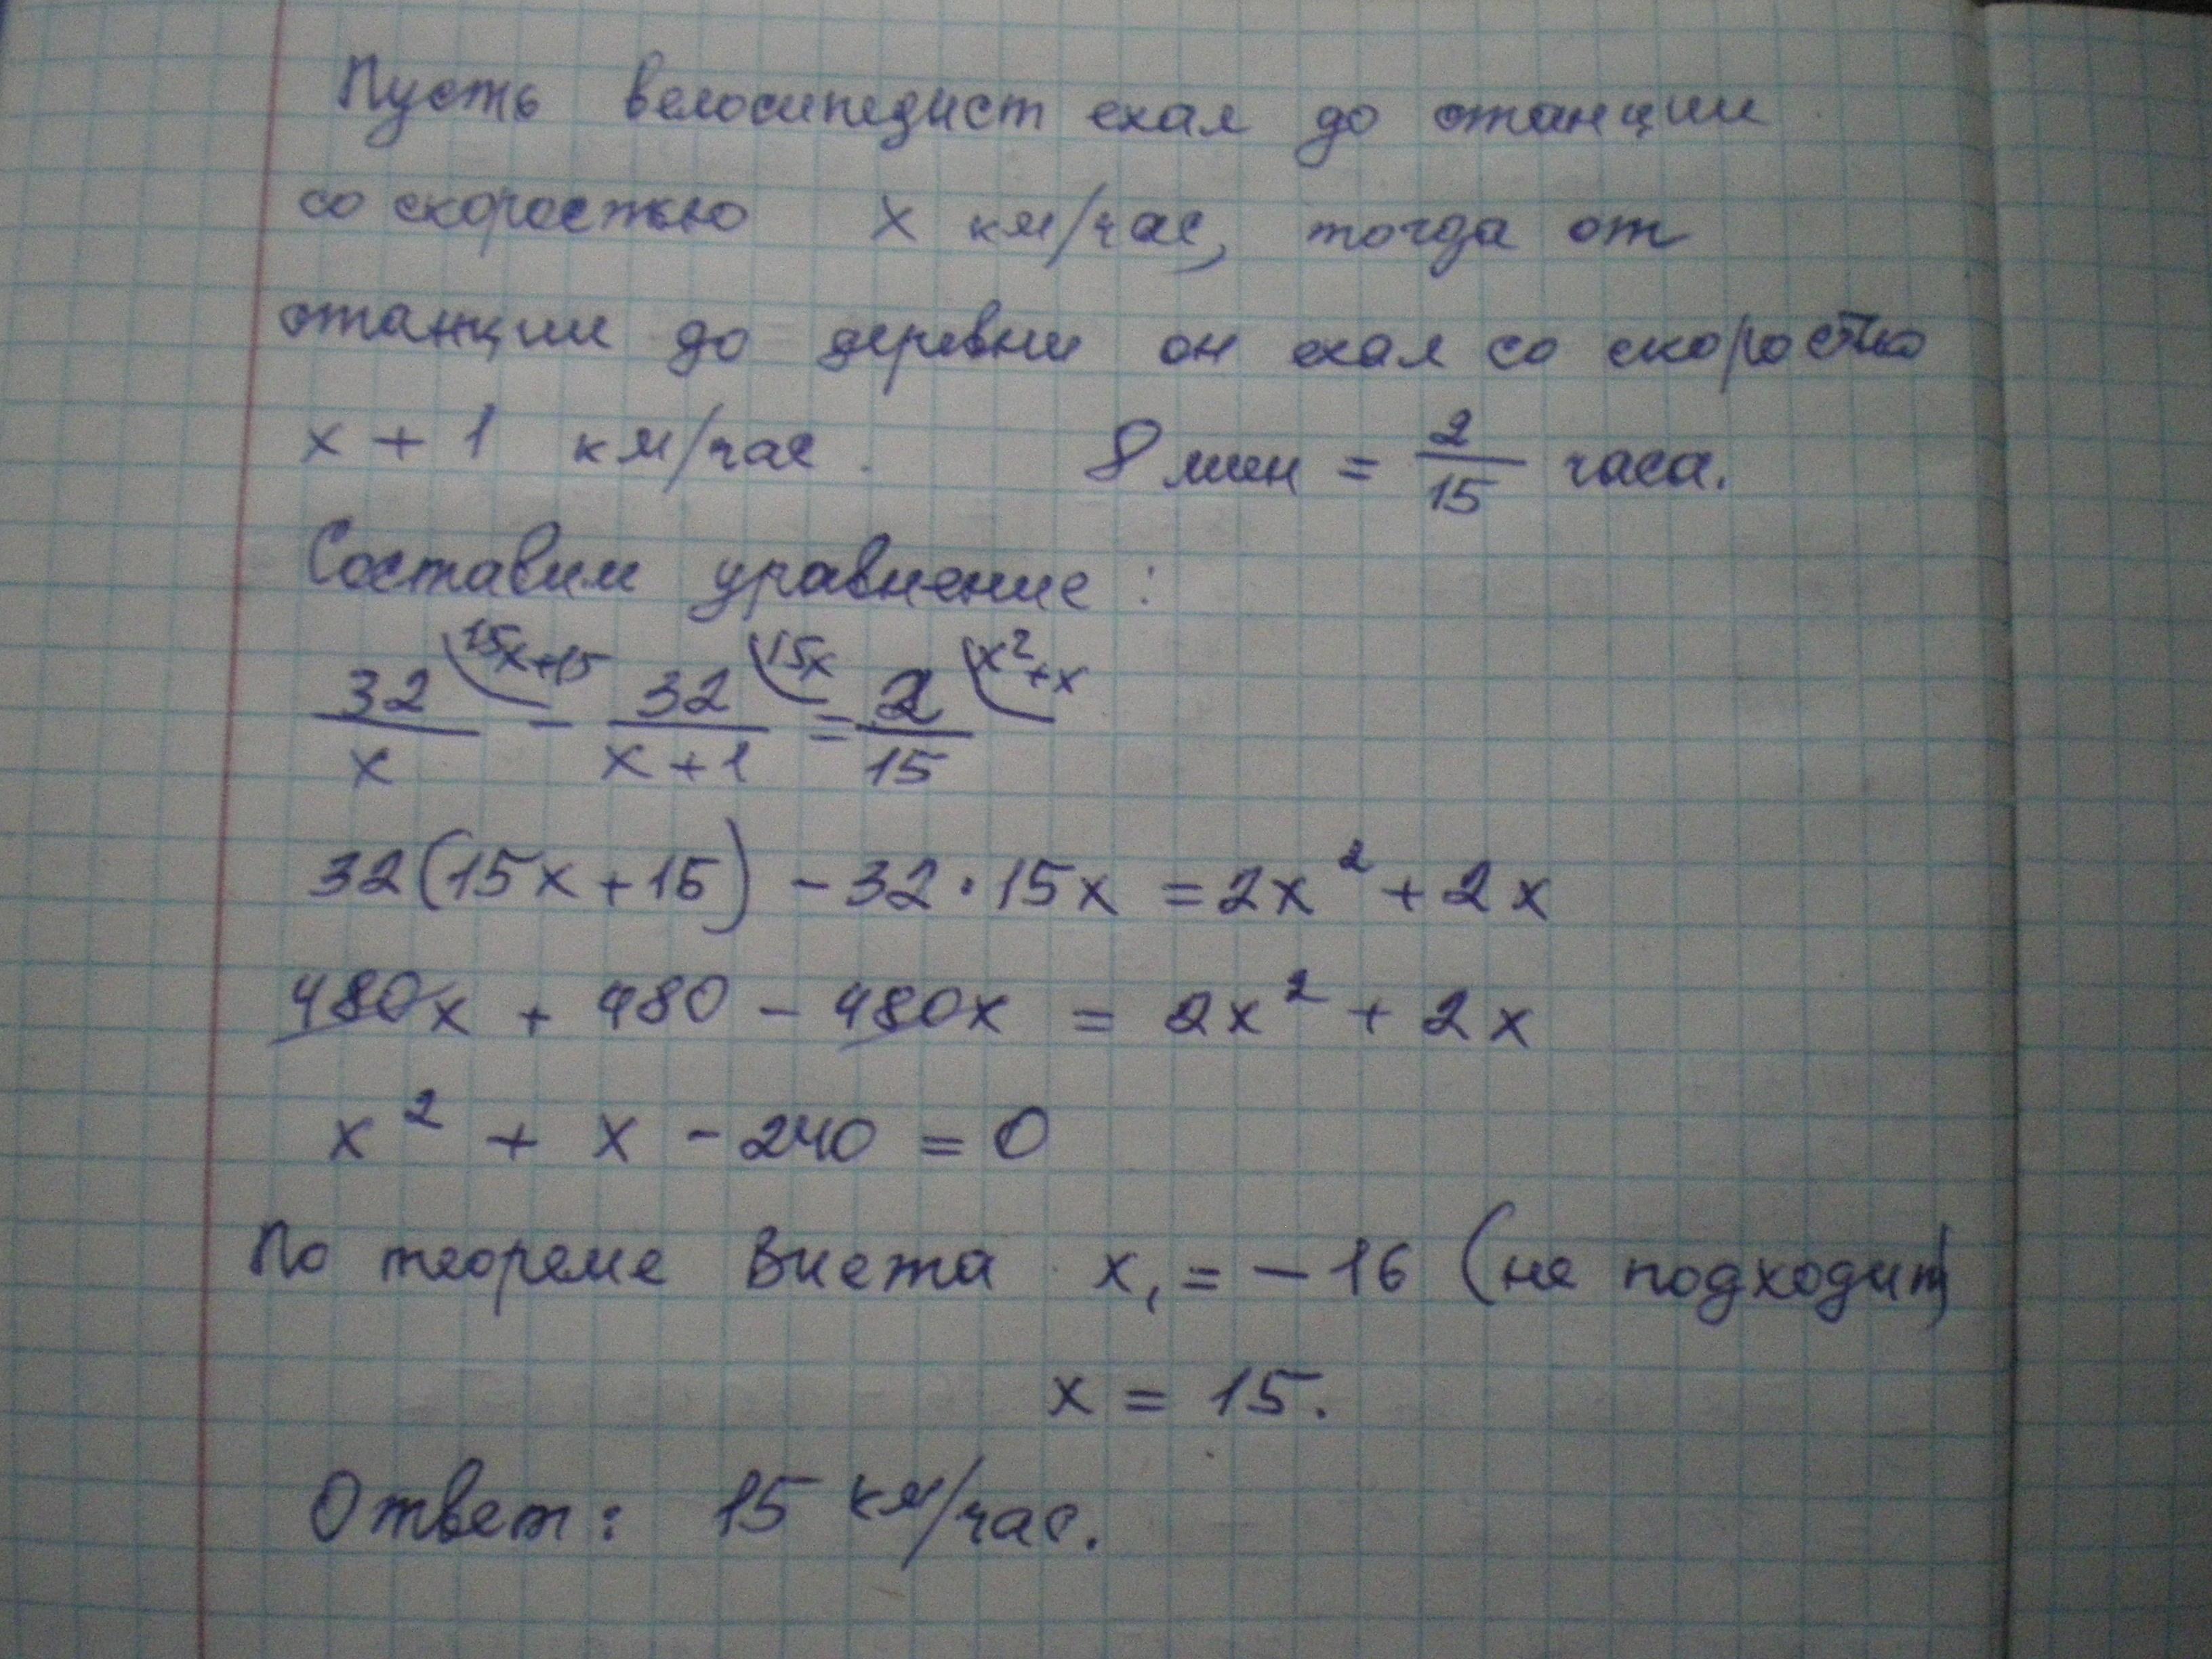 Пусть велосипедист ехал до станции
со скоростью x км/час, тогда от
станции до деревни он ехал со скоростью
x + 1 км/час. 8 мин = 2/15 часа.
Составим уравнение:
32/x (15x+15 − 32/(x+1) (15x = 2/15 (x²+x
32(15x+15) − 32·15x = 2x² + 2x
480x + 480 − 480x = 2x² + 2x
x² + x − 240 = 0
По теореме Виета x₁ = −16 (не подходит)
x = 15.
Ответ: 15 км/час.